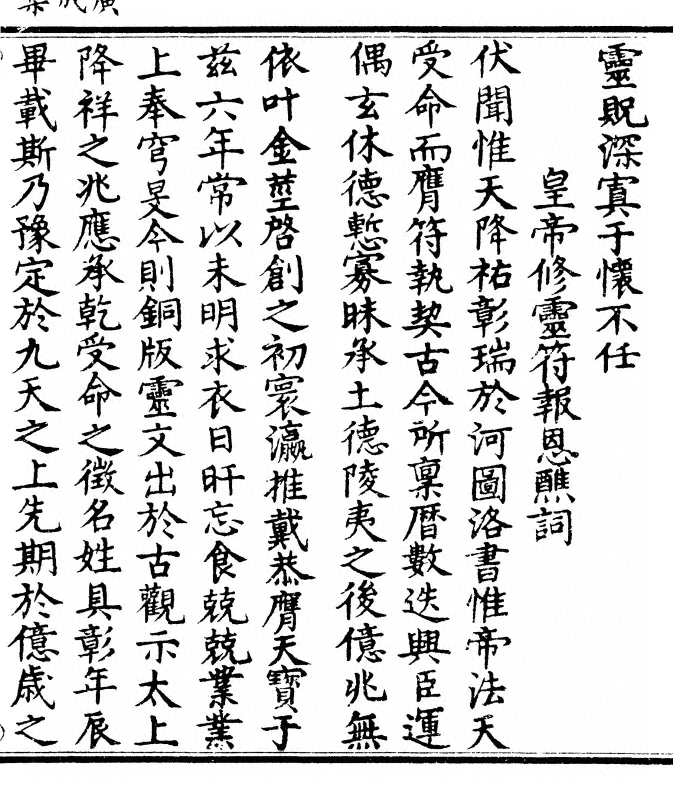 靈貺深寘于懷不任
皇帝修靈符報恩醮詞
伏聞惟天降祐彰瑞於河圖洛書惟帝法天
受命而膺符執契古今所稟曆數迭興臣運
偶玄休德慙寡昧承土德陵夷之後億兆無
依叶金堊啓創之初寰瀛推戴恭膺天寶于
兹六年常以未明求衣日旰忘食兢兢業業
上奉穹旻今則銅版靈文出於古觀示太上
降祥之兆應承乾受命之徵名姓具彰年辰
畢載斯乃豫定於九天之上先期於億歲之